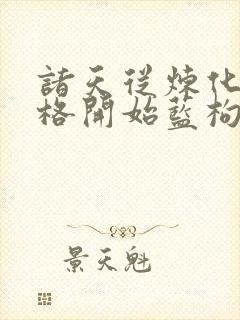 諸天從煉化
格開始藍枸
景天魁